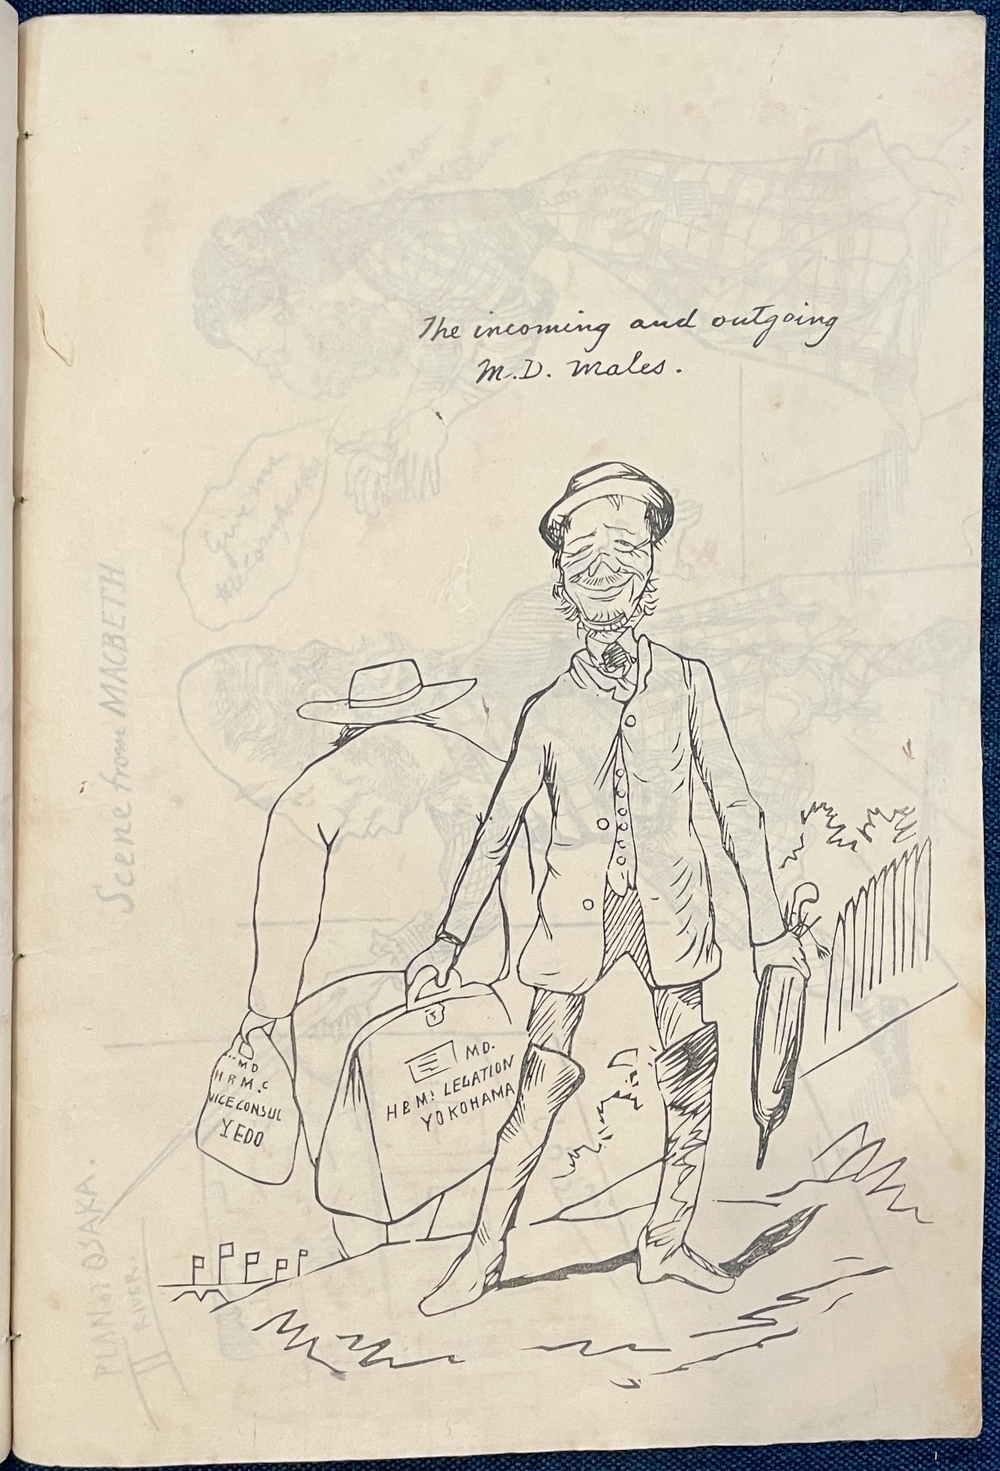 The incoming and outgoing
M.D. males.
MD
H B M. C
VICE CONSUL
YEDO
MD.
H B M! LEGATION
YOKOHAMA
Scene from MACBETH
PLAN of OSAKA.
RIVER.
Give me